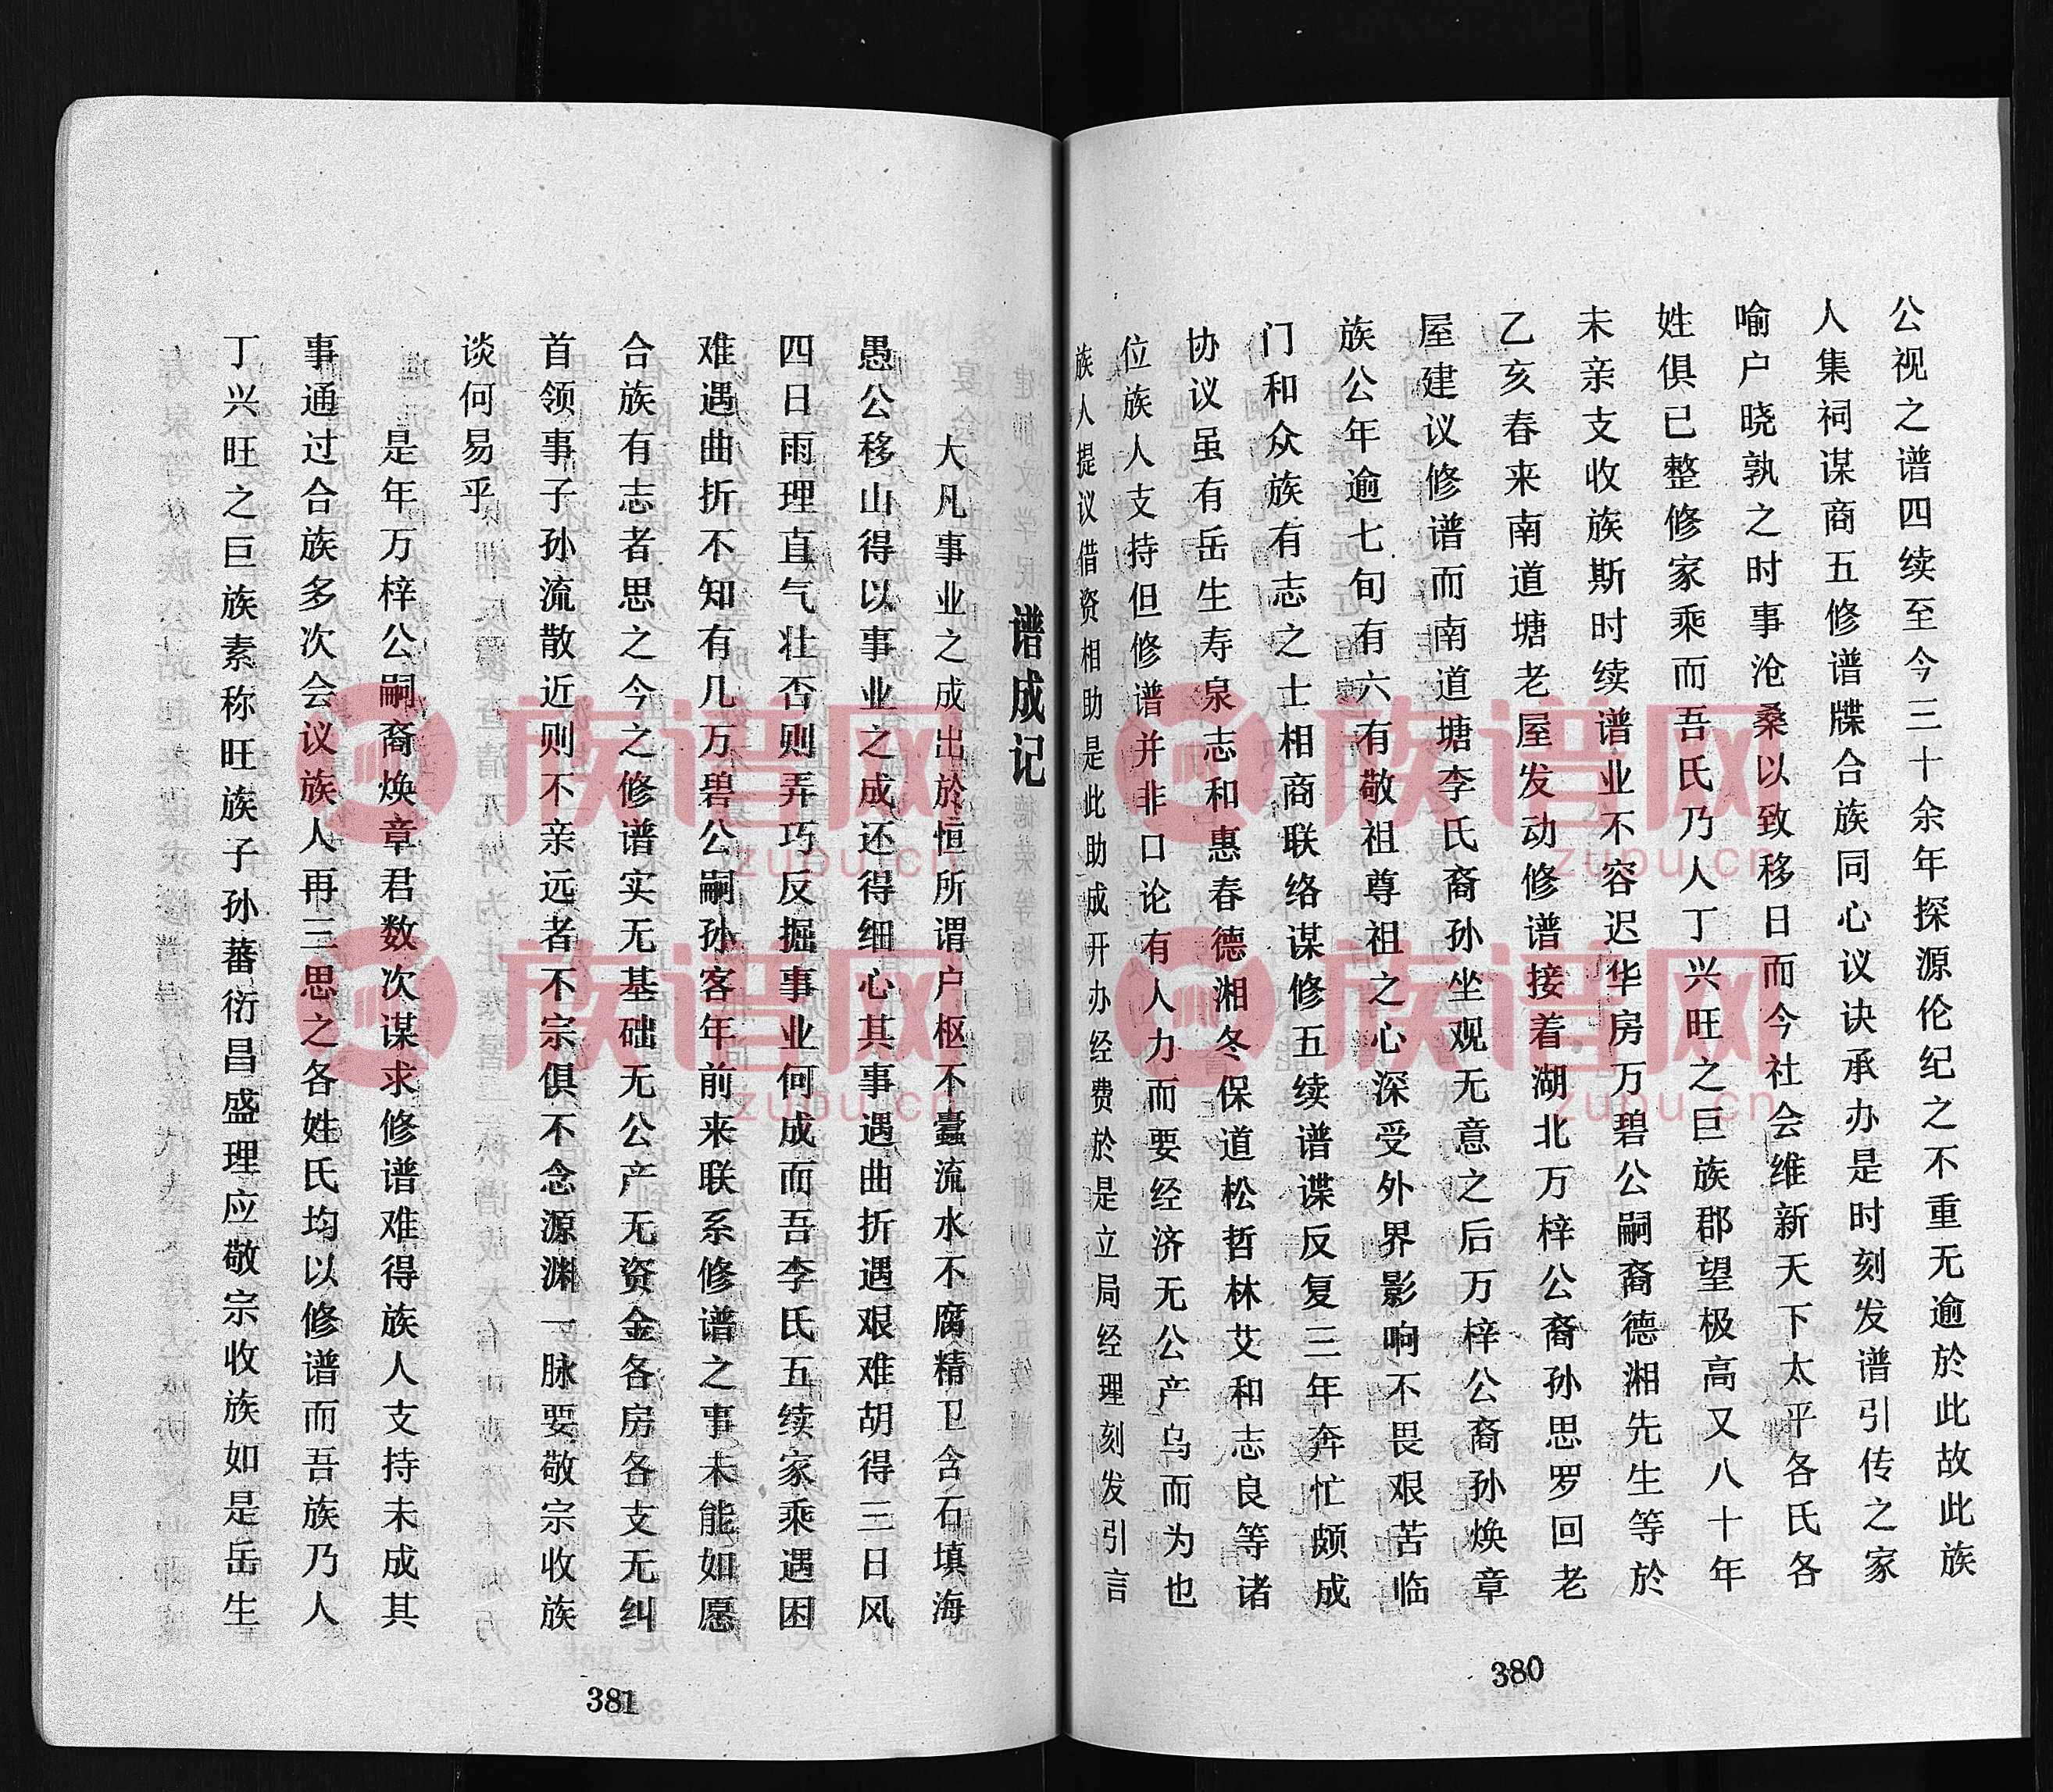 公视之谱四续至今三十余年探源伦纪之不重无逾於此故此族
人集祠谋商五修谱牒合族同心议诀承办是时刻发谱引传之家
喻户晓孰之时事沧桑以致移日而今社会维新天下太平各氏各
姓俱已整修家乘而吾氏乃人丁兴旺之巨族郡望极高又八十年
未亲支收族斯时续谱业不容迟华房万碧公嗣裔德湘先生等於
乙亥春来南道塘老屋发动修谱接着湖北万梓公裔孙思罗回老
屋建议修谱而南道塘李氏裔孙坐观无意之后万梓公裔孙焕章
族公年逾七旬有六有敬祖尊祖之心深受外界影响不畏艰苦临
门和众族有志之士相商联络谋修五续谱谍反复三年奔忙颇成
协议虽有岳生寿泉志和惠春德湘冬保道松哲林艾和志良等诸
位族人支持但修谱并非口论有人力而要经济无公产乌而为也
族人提议借资相助是此助成开办经费於是立局经理刻发引言
380
谱成记
大凡事业之成出於恒所谓户枢不蠹流水不腐精卫含石填海
愚公移山得以事业之成还得细心其事遇曲折遇艰难胡得三日风
四日雨理直气壮否则弄巧反掘事业何成而吾李氏五续家乘遇困
难遇曲折不知有几万碧公嗣孙客年前来联系修谱之事未能如愿
合族有志者思之今之修谱实无基础无公产无资金各房各支无纠
首领事子孙流散近则不亲远者不宗俱不念源渊一脉要敬宗收族
谈何易乎
是年万梓公嗣裔焕章君数次谋求修谱难得族人支持未成其
事通过合族多次会议族人再三思之各姓氏均以修谱而吾族乃人
丁兴旺之巨族素称旺族子孙蕃衍昌盛理应敬宗收族如是岳生
381
族谱网
zupu.cn
族谱网
zupu.cn
族谱网
zupu.cn
族谱网
zupu.cn